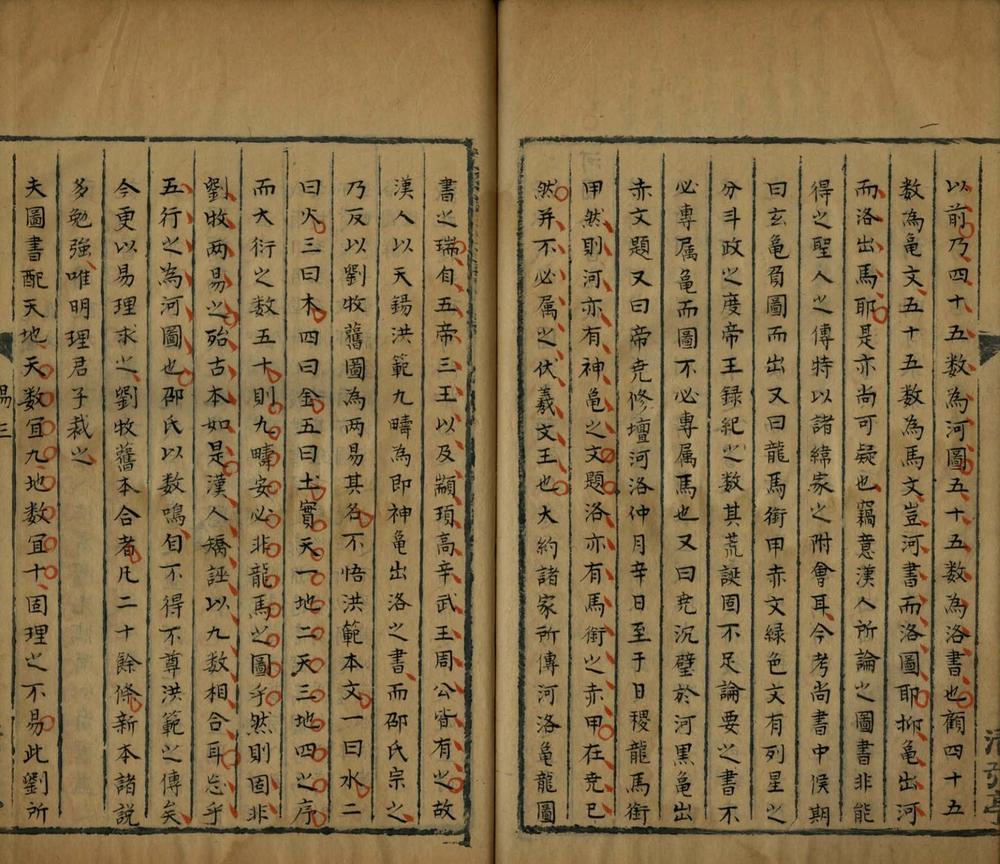 以前乃四十五數為河圖五十五數為洛書也顧四十五
數為亀文五十五數為馬文豈河書而洛圖耶抑亀出河
而洛出馬耶是亦尚可疑也竊意漢人所論之圖書非能
得之聖人之傳特以諸緯家之附會耳今考尚書中候期
曰玄亀負圖而出又曰龍馬銜甲赤文緑色文有列星之
分斗政之度帝王録紀之數其荒誕固不足論要之書不
必專属亀而圖不必專属馬也又曰尭沉璧於河黒亀出
赤文題又曰帝尭修壇河洛仲月辛日至于日稷龍馬銜
甲然則河亦有神亀之文題洛亦有馬銜之赤甲在尭已
然并不必属之伏羲文王也大約諸家所傳河洛亀龍圖
書之瑞自五帝三王以及顓頊高辛武王周公皆有之故
漢人以天錫洪範九疇為即神亀出洛之書而邵氏宗之
乃反以劉牧舊圖為两易其名不悟洪範本文一曰水二
曰火三曰木四曰金五曰土實天一地二天三地四之序
而大衍之数五十則九疇安必非龍馬之圖乎然則固非
劉牧两易之殆古本如是漢人矯誣以九數相合耳忘乎
五行之為河圖也邵氏以数鳴自不得不尊洪範之傳矣
今更以易理求之劉牧舊本合者凡二十餘條新本諸說
多勉強唯明理君子裁之
夫圖書配天地天数宜九地数宜十固理之不易此劉所
易三